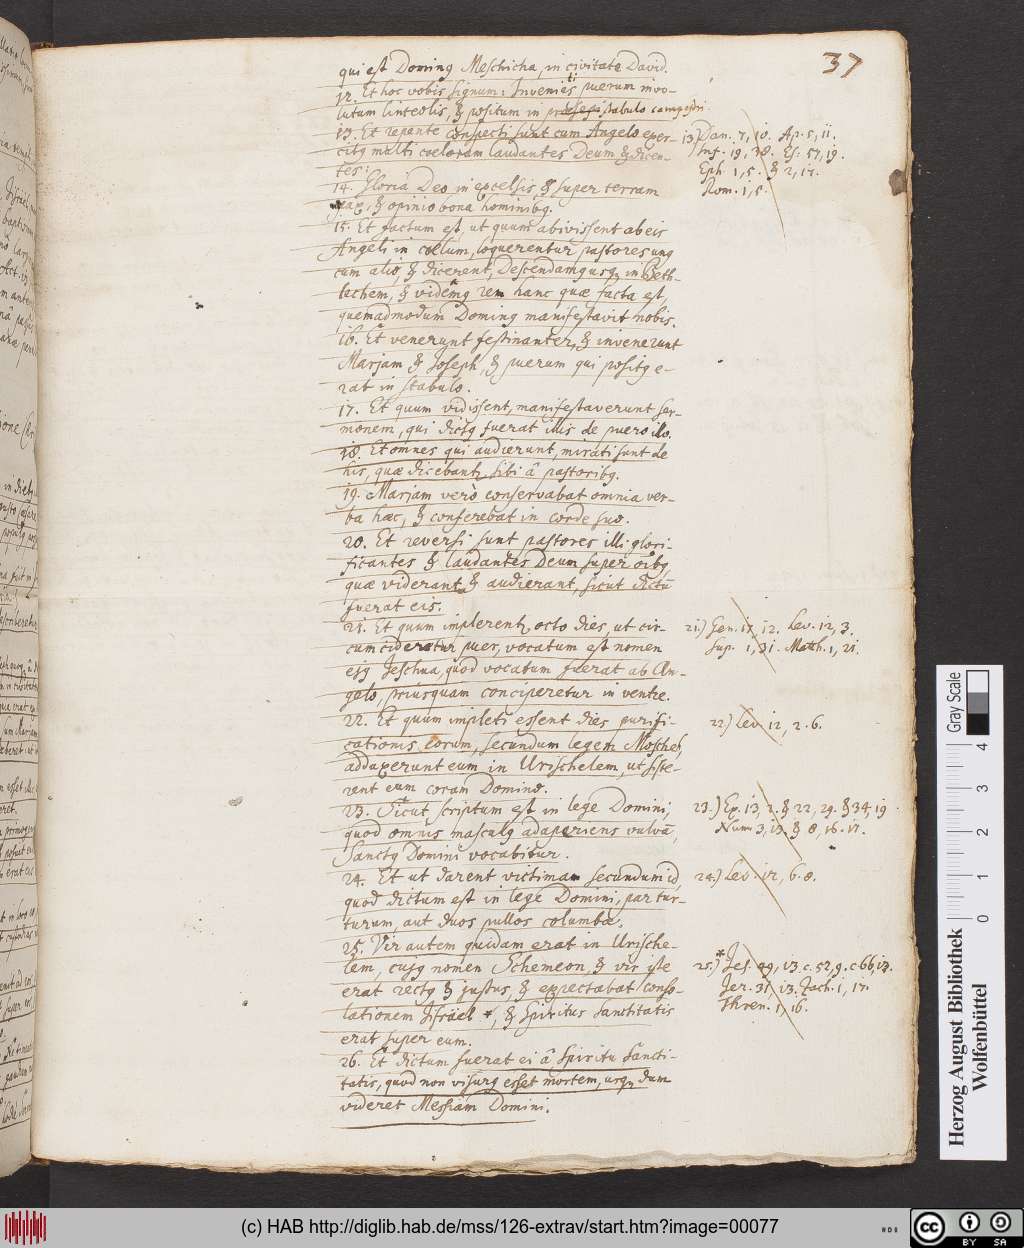 37
qui est Dominꝰ Meschicha, in civitate David.
12. Et hoc vobis signum: Invenietis puerum invo-
lutum linteolis, & positum in præsepi stabulo campestri.
13. Et repente conspecti sunt cum Angelo exer-
citꝰ multi cœlorum laudantes Deum & dicen-
tes:
14. Gloria Deo in excelsis & super terram
pax, & opinio bona hominibꝰ.
15. Et factum est, ut quum abivissent ab eis
Angeli in cœlum, loquerentur pastores unꝰ
cum alio, & dicerent, Descendamꝰ usqꝫ in Beth-
lechem, & videamꝰ rem hanc quæ facta est,
quemadmodum Dominꝰ manifestavit nobis.
16. Et venerunt festinanter, & invenerunt
Marjam & Joseph, & puerum qui positꝰ e-
rat in stabulo.
17. Et quum vidissent, manifestaverunt ser-
monem, qui dictꝰ fuerat illis de puero illo.
18. Et omnes qui audierunt, mirati sunt de
his, quæ dicebantr sibi â pastoribꝰ.
19. Marjam verò conservabat omnia ver-
ba hæc, & conferebat in corde suo.
20. Et reversi sunt pastores illi glori-
ficantes & laudantes Deum super oibꝰ,
quæ viderant & audierant, sicut dictũ
fuerat eis.
21. Et quum implerentr octo dies, ut cir-
cumcideretur puer, vocatum est nomen
ejꝰ Jeschua, quod vocatum fuerat ab An-
gelo, priusquam conciperetur in ventre.
22. Et quum impleti essent dies purifi-
cationis eorum, secundum legem Mosche,
adduxerunt eum in Urischelem, ut siste-
rent eum coram Domino.
23. Sicut scriptum est in lege Domini,
quod omnis masculꝰ adaperiens vulvã,
Sanctꝰ Domini vocabitur.
24. Et ut darent victimam secundum id,
quod dictum est in lege Domini, par tur-
turum, aut duos pullos columbæ.
25. Vir autem quidam erat in Urische-
lem, cujꝰ nomen Schemeon, & vir iste
erat rectꝰ & justus, & expectabat conso-
lationem Jisraël *, & Spiritus Sanctitatis
erat super eum.
26. Et dictum fuerat ei â Spiritu Sancti-
tatis, quod non visurꝰ esset mortem, usqꝫ dum
videret Messiam Domini.
13) Dan. 7, 10. Ap. 5, 11.
Inf. 19, 38. Es. 57, 19.
Eph. 1, 5. & 2, 17.
Rom. 1, 5.
21) Gen. 17, 12. Lev. 12, 3.
Sup. 1, 31. Matth. 1, 21.
22) Lev. 12, 2. 6.
23.) Ex. 13, 2. & 22, 29. & 34, 19
Num. 3, 13. & 8, 16. 17.
24.) Lev. 12, 6. 8.
25.) * Jes. 49, 13. c. 52, 9. c. 66, 13.
Jer. 31, 13. Zach. 1, 17.
Thren. 1, 16.
Herzog August Bibliothek
Wolfenbüttel
Gray Scale
0 1 2 3 4
(c) HAB http://diglib.hab.de/mss/126-extrav/start.htm?image=00077
cc BY SA